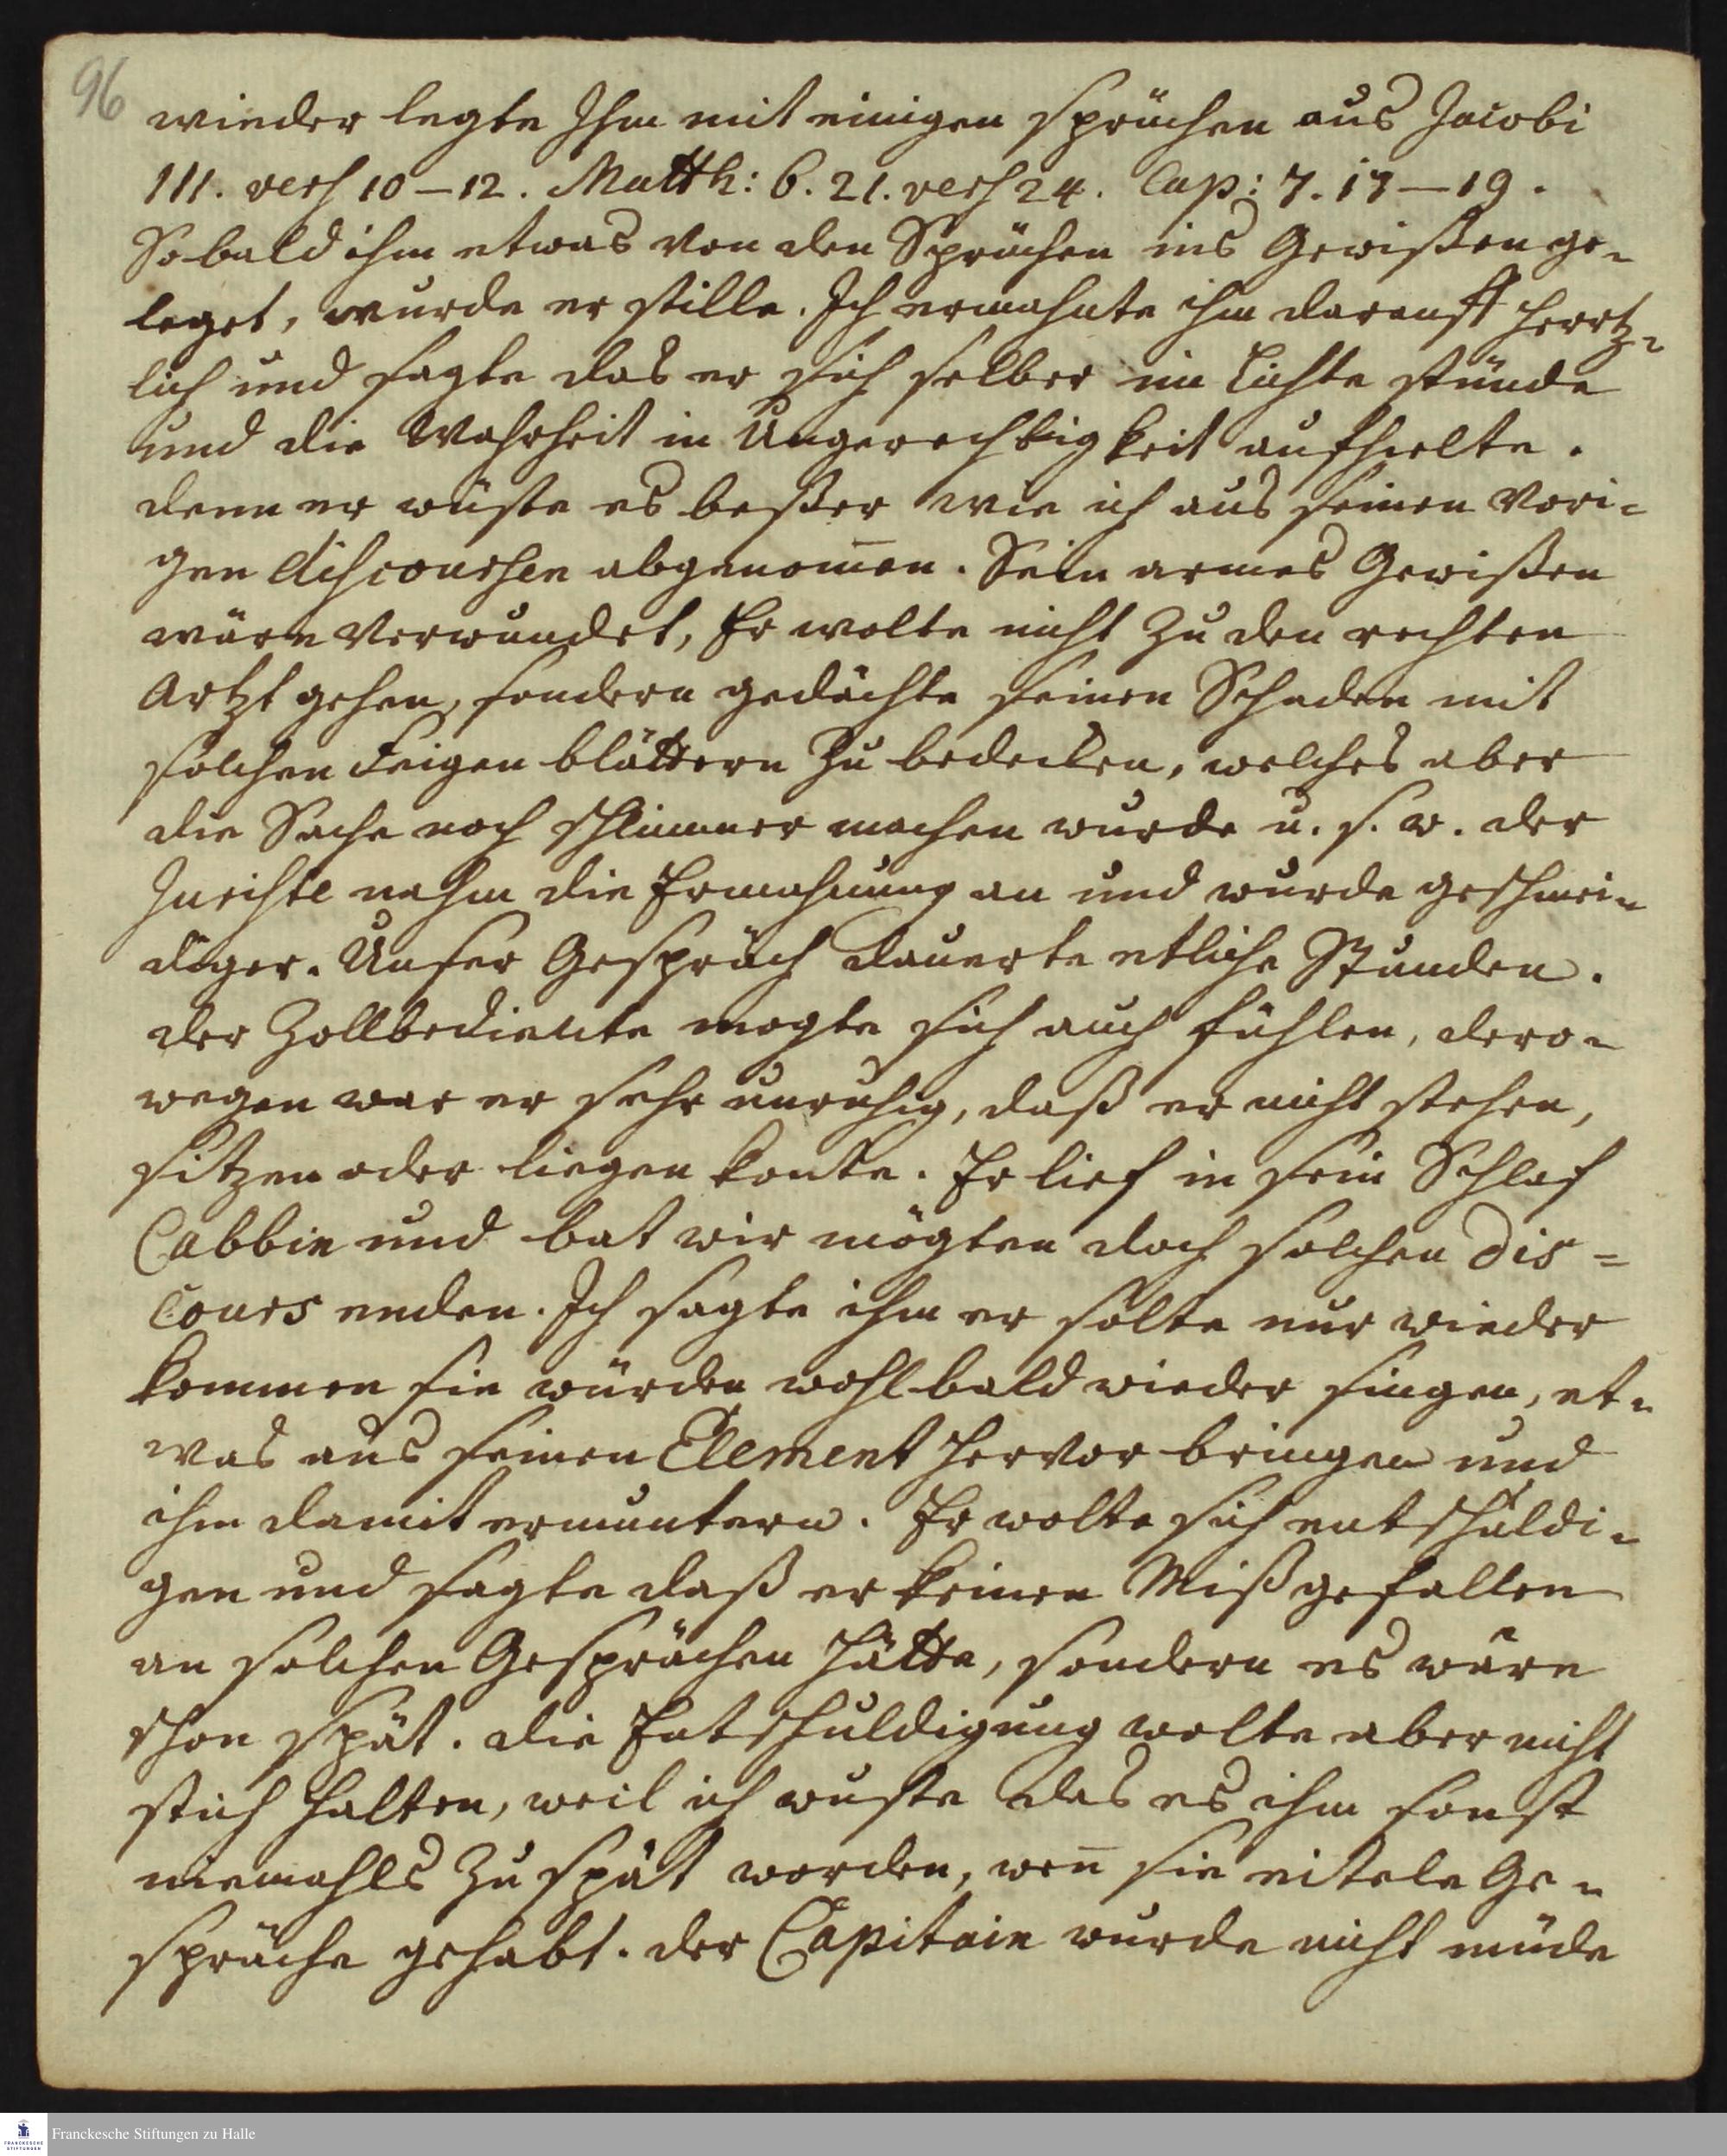 96
wieder legte Ihm mit einigen sprüchen aus Jacobi
III. vers 10–12. Matth: 6. 21. vers 24. Cap: 7. 17–19.
So bald ihm etwas von den Sprüchen ins Gewißen ge-
leget, wurde er stille. Ich ermahnte ihm darauff hertz-
lich und sagte das er sich selber im Lichte stünde
und die Wahrheit in Ungerechtigkeit aufhielte.
denn er wüste es beßer wie ich aus seinen vori-
gen discoursen abgenom̄en. Sein armes Gewißen
wäre verwundet, Er wolte nicht zu den rechten
Artzt gehen, sondern gedächte seinen Schaden mit
solchen Feigen blättern zu bedecken, welches aber
die Sache noch schlimmer machen wurde u. s. w. der
Juriste nahm die Ermahnung an und wurde geschmei-
diger. Unser Gespräch dauerte etliche Stunden.
der Zollbediente mogte sich auch fühlen, dero-
wegen war er sehr unruhig, daß er nicht stehen,
sitzen oder liegen konte. Er lief in sein Schlaf
Cabbin und bat wir mögten doch solchen Dis-
cours enden. Ich sagte ihm er solte nur wieder
kommen sie würden wohl bald wieder singen, et-
was aus seinen Element hervor bringen und
ihm damit ermuntern. Er wolte sich entschuldi-
gen und sagte daß er keinen Mißgefallen
an solchen Gesprächen hätte, sondern es wäre
schon spät. die Entschuldigung wolte aber nicht
stich halten, weil ich wuste das es ihm sonst
niemahls zu spät worden, wen̄ sie eitele Ge-
spräche gehabt. der Capitain wurde nicht müde
FRANCKESCHE STIFTUNGEN
Franckesche Stiftungen zu Halle